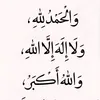 وَالْحَمْدُ لِلَّهِ،
وَلَا إِلَهَ إِلَّا اللهُ،
وَاللهُ أَكْبَرُ،